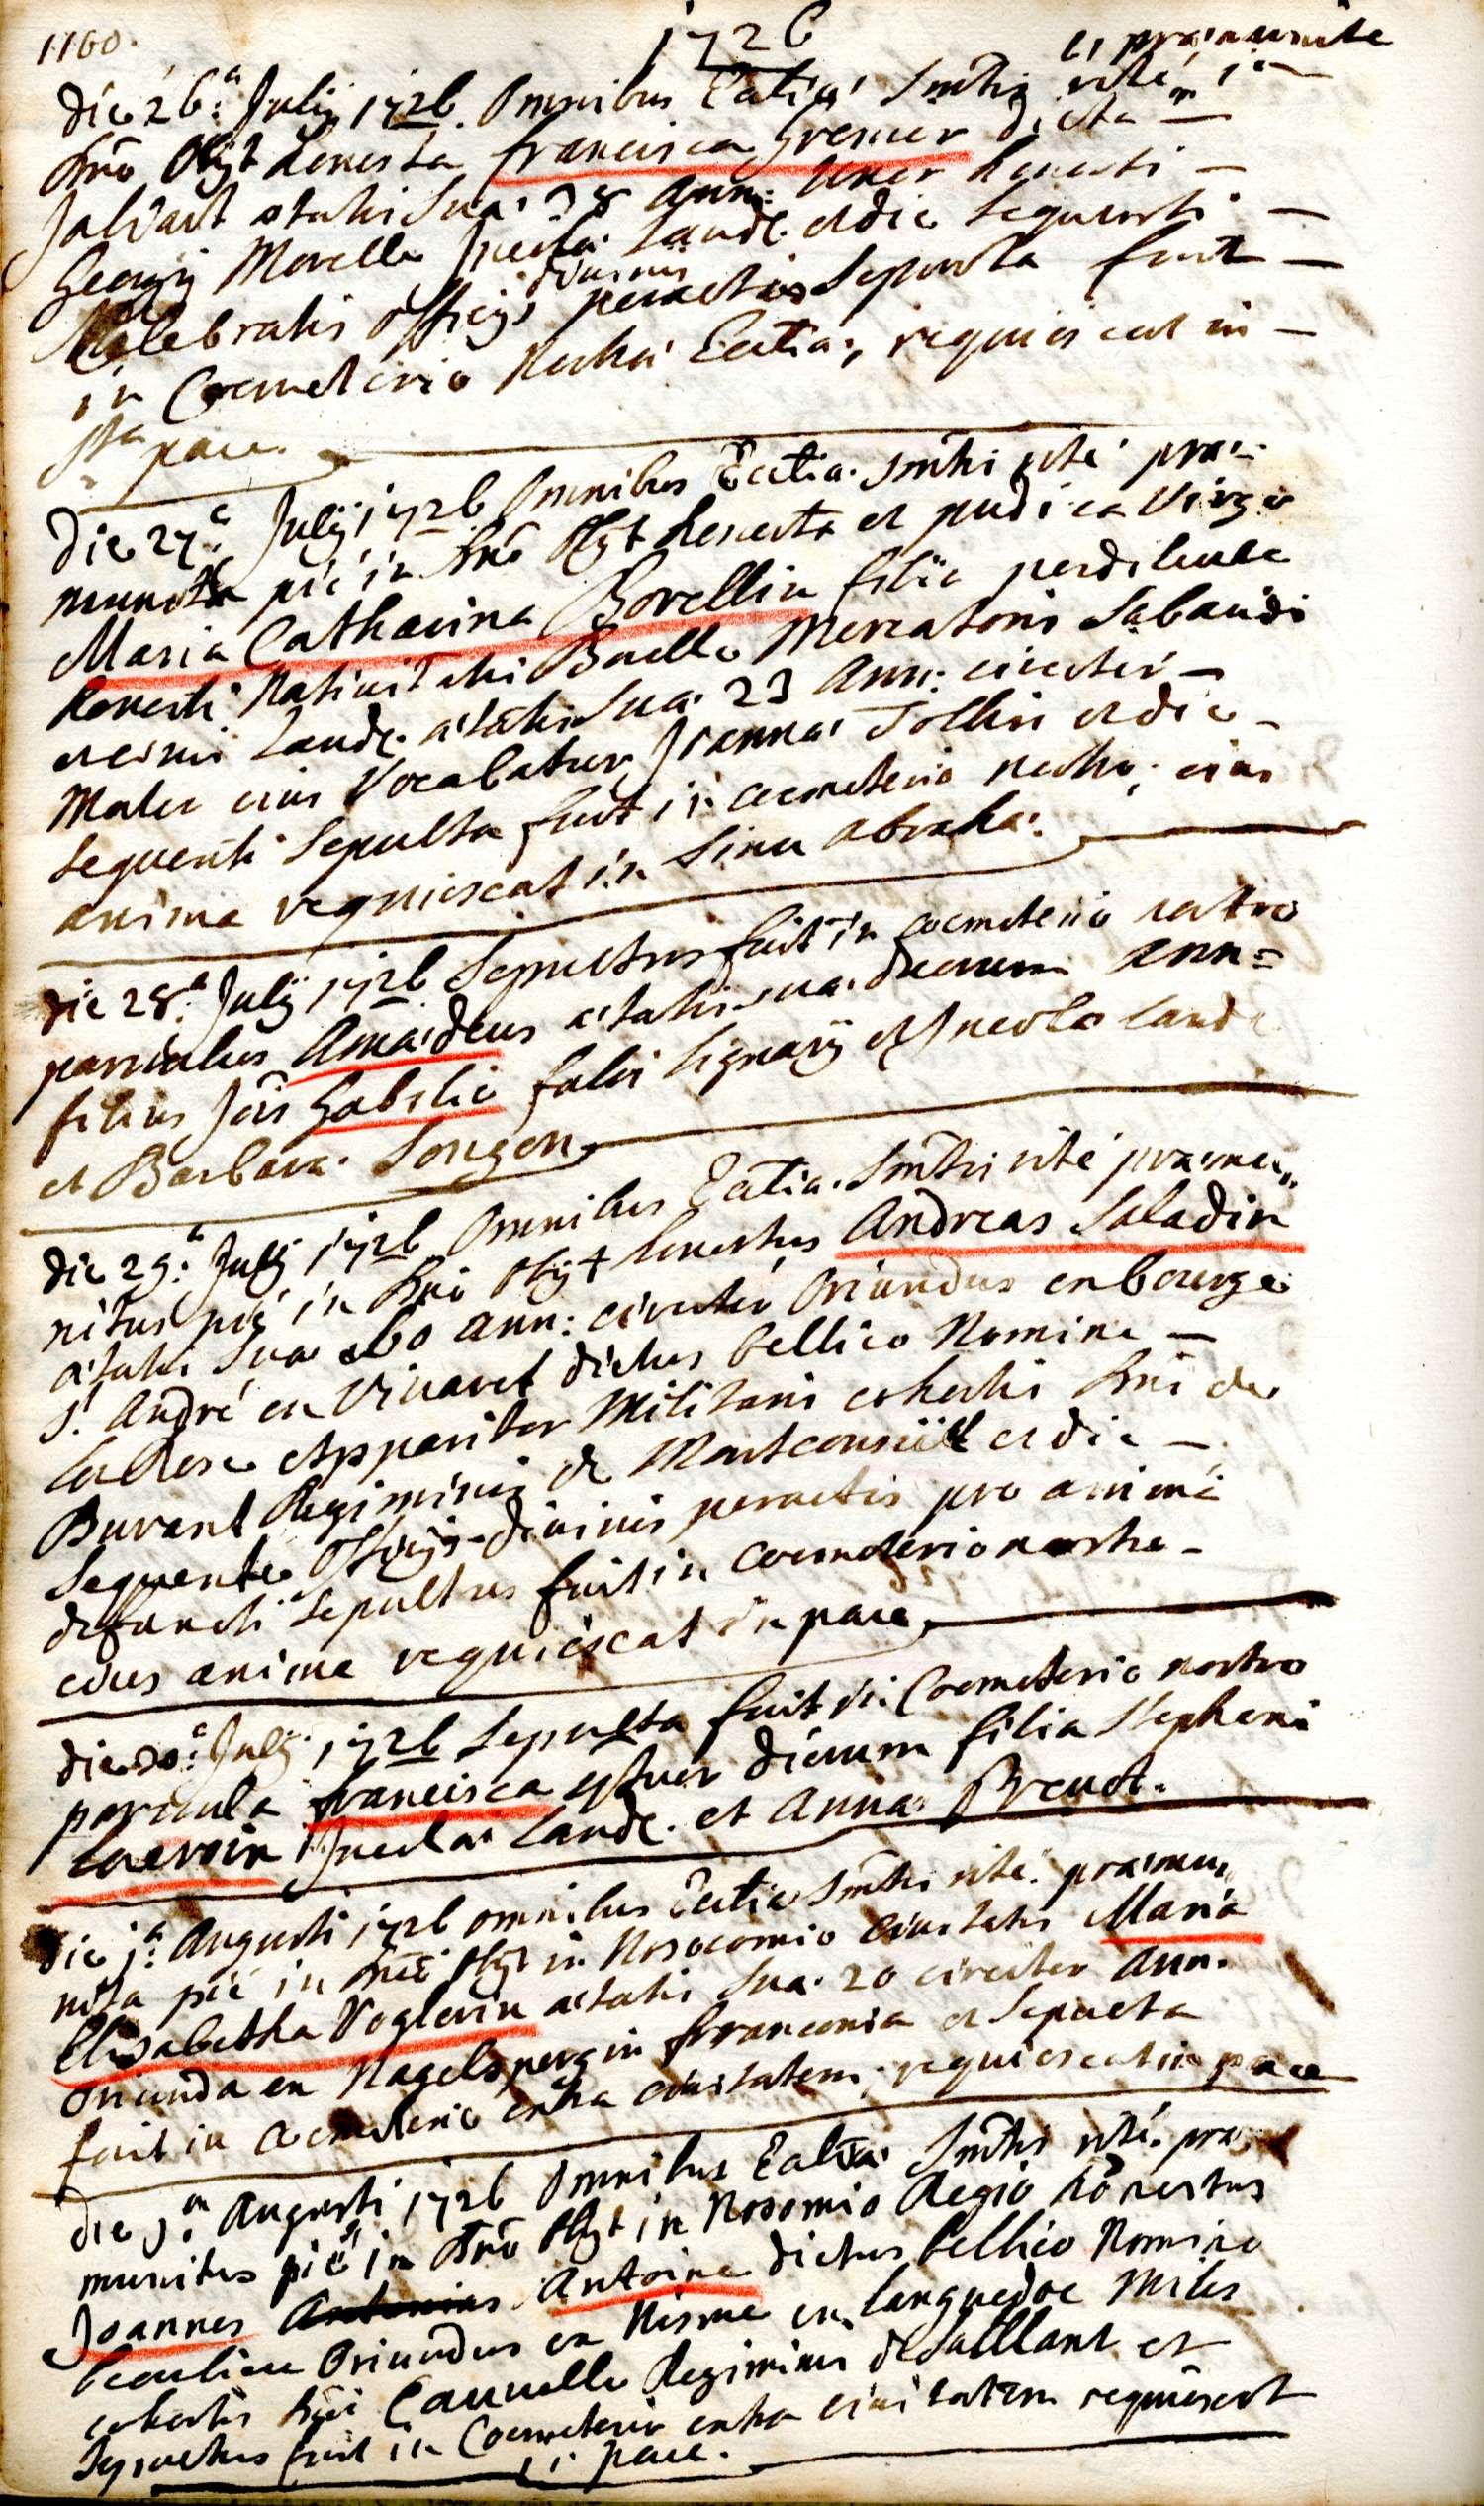 1160.
1726
et præmunita
die 26.a July 1726. Omnibus Eccliæ Smtis rité, in
Dno Obijt honesta francisca Grenier dicta
Jalvart ætatis Suæ 38 Ann: Uxor honesti
Georgij Morelle Incolæ Land. et die Sequenti
Celebratis officijs divinis peractis Sepulta fuit
in Coemeterio Nostræ Eccliæ, requiescat in
sta pace.
Die 27.a July 1726 Omnibus Eccliæ Smtis rité præ=
munita pié in Dno Obijt honesta et pudica Virgo
Maria Catharina Borellin filia perdilecta
honesti Nativitatis Borelle Mercatoris Sabaudi
et civis Land. ætatis Suæ 23 Ann: circiter
Mater eius Vocabatur Joanna Tollin et die
Sequenti Sepulta fuit in coemeterio nostro, eius
anima requiescat in Sinu abrahæ.
die 28.a July 1726 Sepultus fuit in coemeterio nostro
parvulus Amadeus ætatis suæ duorum ann=
filius Jois Gabelie fabri lignarij et Incolæ Land.
et Barbaræ Songen
die 29.a July 1726 Omnibus Eccliæ Smtis rité præmu,,
nitus pié in Dno Obijt honestus Andreas Saladin
ætatis Suæ 60 ann: circiter Oriundus ex bourge
St. André en Vivaret dictus bellico Nomine
La Rose Apparitor Militaris cohortis Dni de
Burant Regiminis de Montconseill et die
Sequente Officijs divinis peractis pro animâ
defuncti Sepultus fuit in Coemeterio nostro
eius anima requiescat in pace
die 30.a July 1726 Sepulta fuit in Coemeterio nostro
parvula francisca quatuor dierum filia Stephani
Lacroix Incolæ Land. et Annæ Brevot.
die 1.a Augusti 1726 omnibus Eccliæ Smtis rité præmu,,
nita pié in Dno Obijt in Nosocomio Civitatis Maria
Elisabetha Voglerin ætatis Suæ 20 circiter Ann.
Oriunda ex Nagelsperg in franconia et Sepulta
fuit in Coemeterio extra civitatem, requiescat in pace
die 1.a Augusti 1726 Omnibus Eccliæ Smtis rité præ
munitus pié in Dno Obijt in Nosomio Regio honestus
Joannes Antonius Antoine dictus bellico Nomine
beaulieu Oriundus ex Nisme en languedoc Miles
cohortis Dni Cauvelle Regiminis de Saillant et
Sepultus fuit in Coemeterio extra civitatem requiescat
in pace.